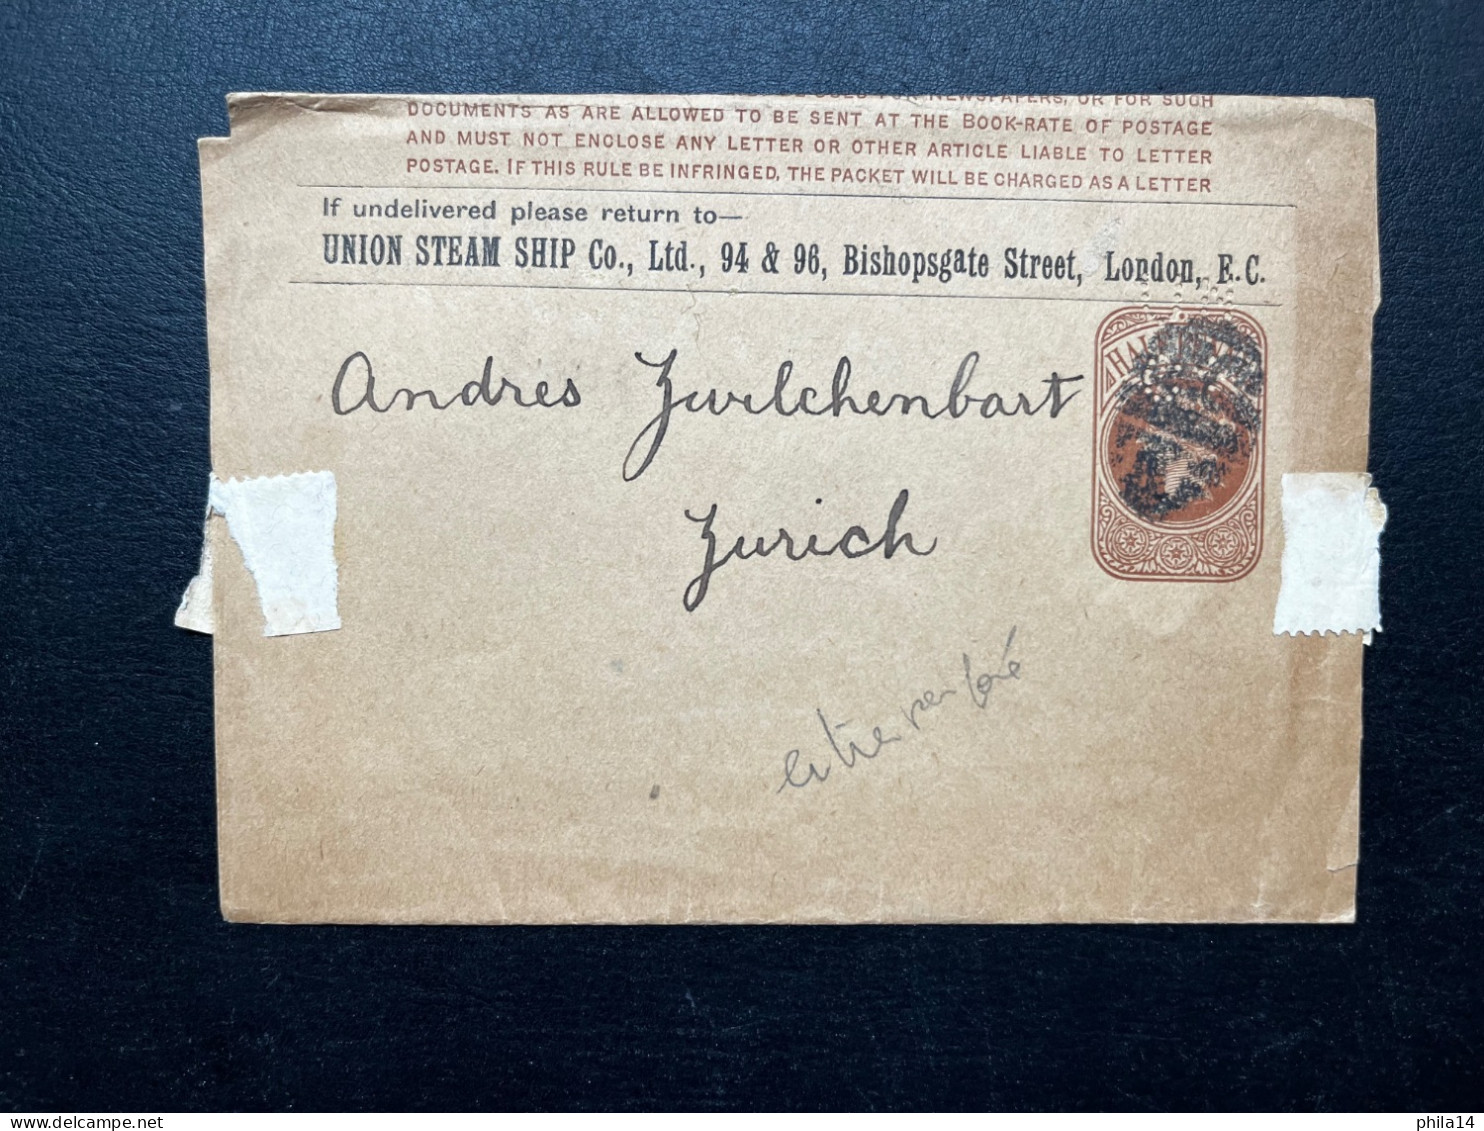 FOR NEWSPAPERS, OR FOR SUCH
DOCUMENTS AS ARE ALLOWED TO BE SENT AT THE BOOK-RATE OF POSTAGE
AND MUST NOT ENCLOSE ANY LETTER OR OTHER ARTICLE LIABLE TO LETTER
POSTAGE. IF THIS RULE BE INFRINGED, THE PACKET WILL BE CHARGED AS A LETTER
If undelivered please return to—
UNION STEAM SHIP Co., Ltd., 94 & 96, Bishopsgate Street, London, E.C.
HALFPENNY
Andres Zwilchenbart
Zurich
phila14